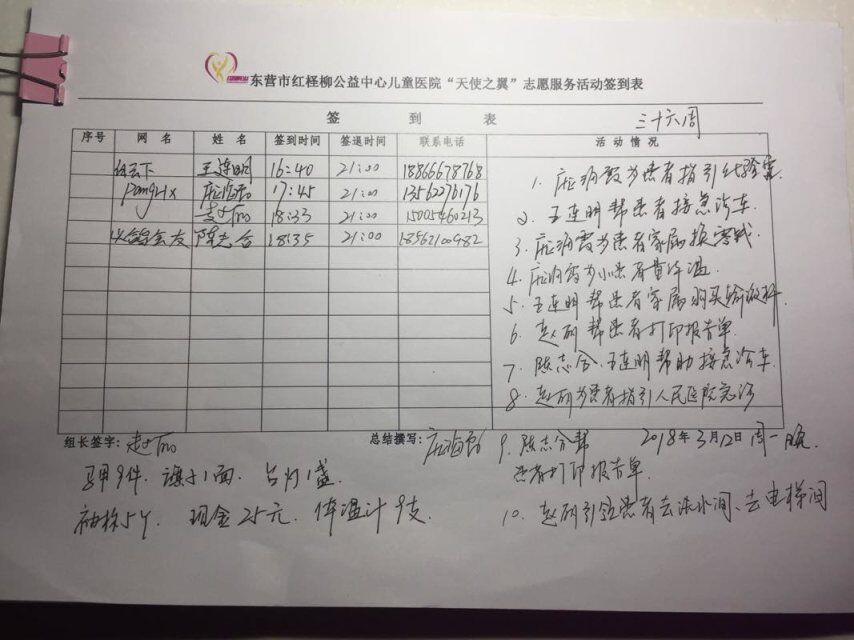 东营市红柽柳公益中心儿童医院“天使之翼”志愿服务活动签到表
签 到 表 三十六周
序号 网名 姓名 签到时间 签退时间 联系电话 活动情况
王连明 16:40 21:00 18866678768
pangHx 17:45 21:00 13562276176
18:33 21:00 15005460213
以鸽会友 陈志合 18:35 21:00 18562100982
1. 为患者指引化验室
2. 王连明帮患者接急诊车
3. 为患者家属换零钱
4. 为小患者量体温
5. 王连明帮患者家属购买
6. 赵研帮患者打印报告单
7. 陈志合、王连明帮助接急诊车
8. 赵研为患者指引人民医院急诊
组长签字: 总结撰写: 2018年3月12日 周一晚
9. 陈志合帮
患者打印报告单
10. 赵研引领患者去开水间、去电梯间
马甲9件 旗子1面 台灯1盏
袖标5个 现金25元 体温计9支